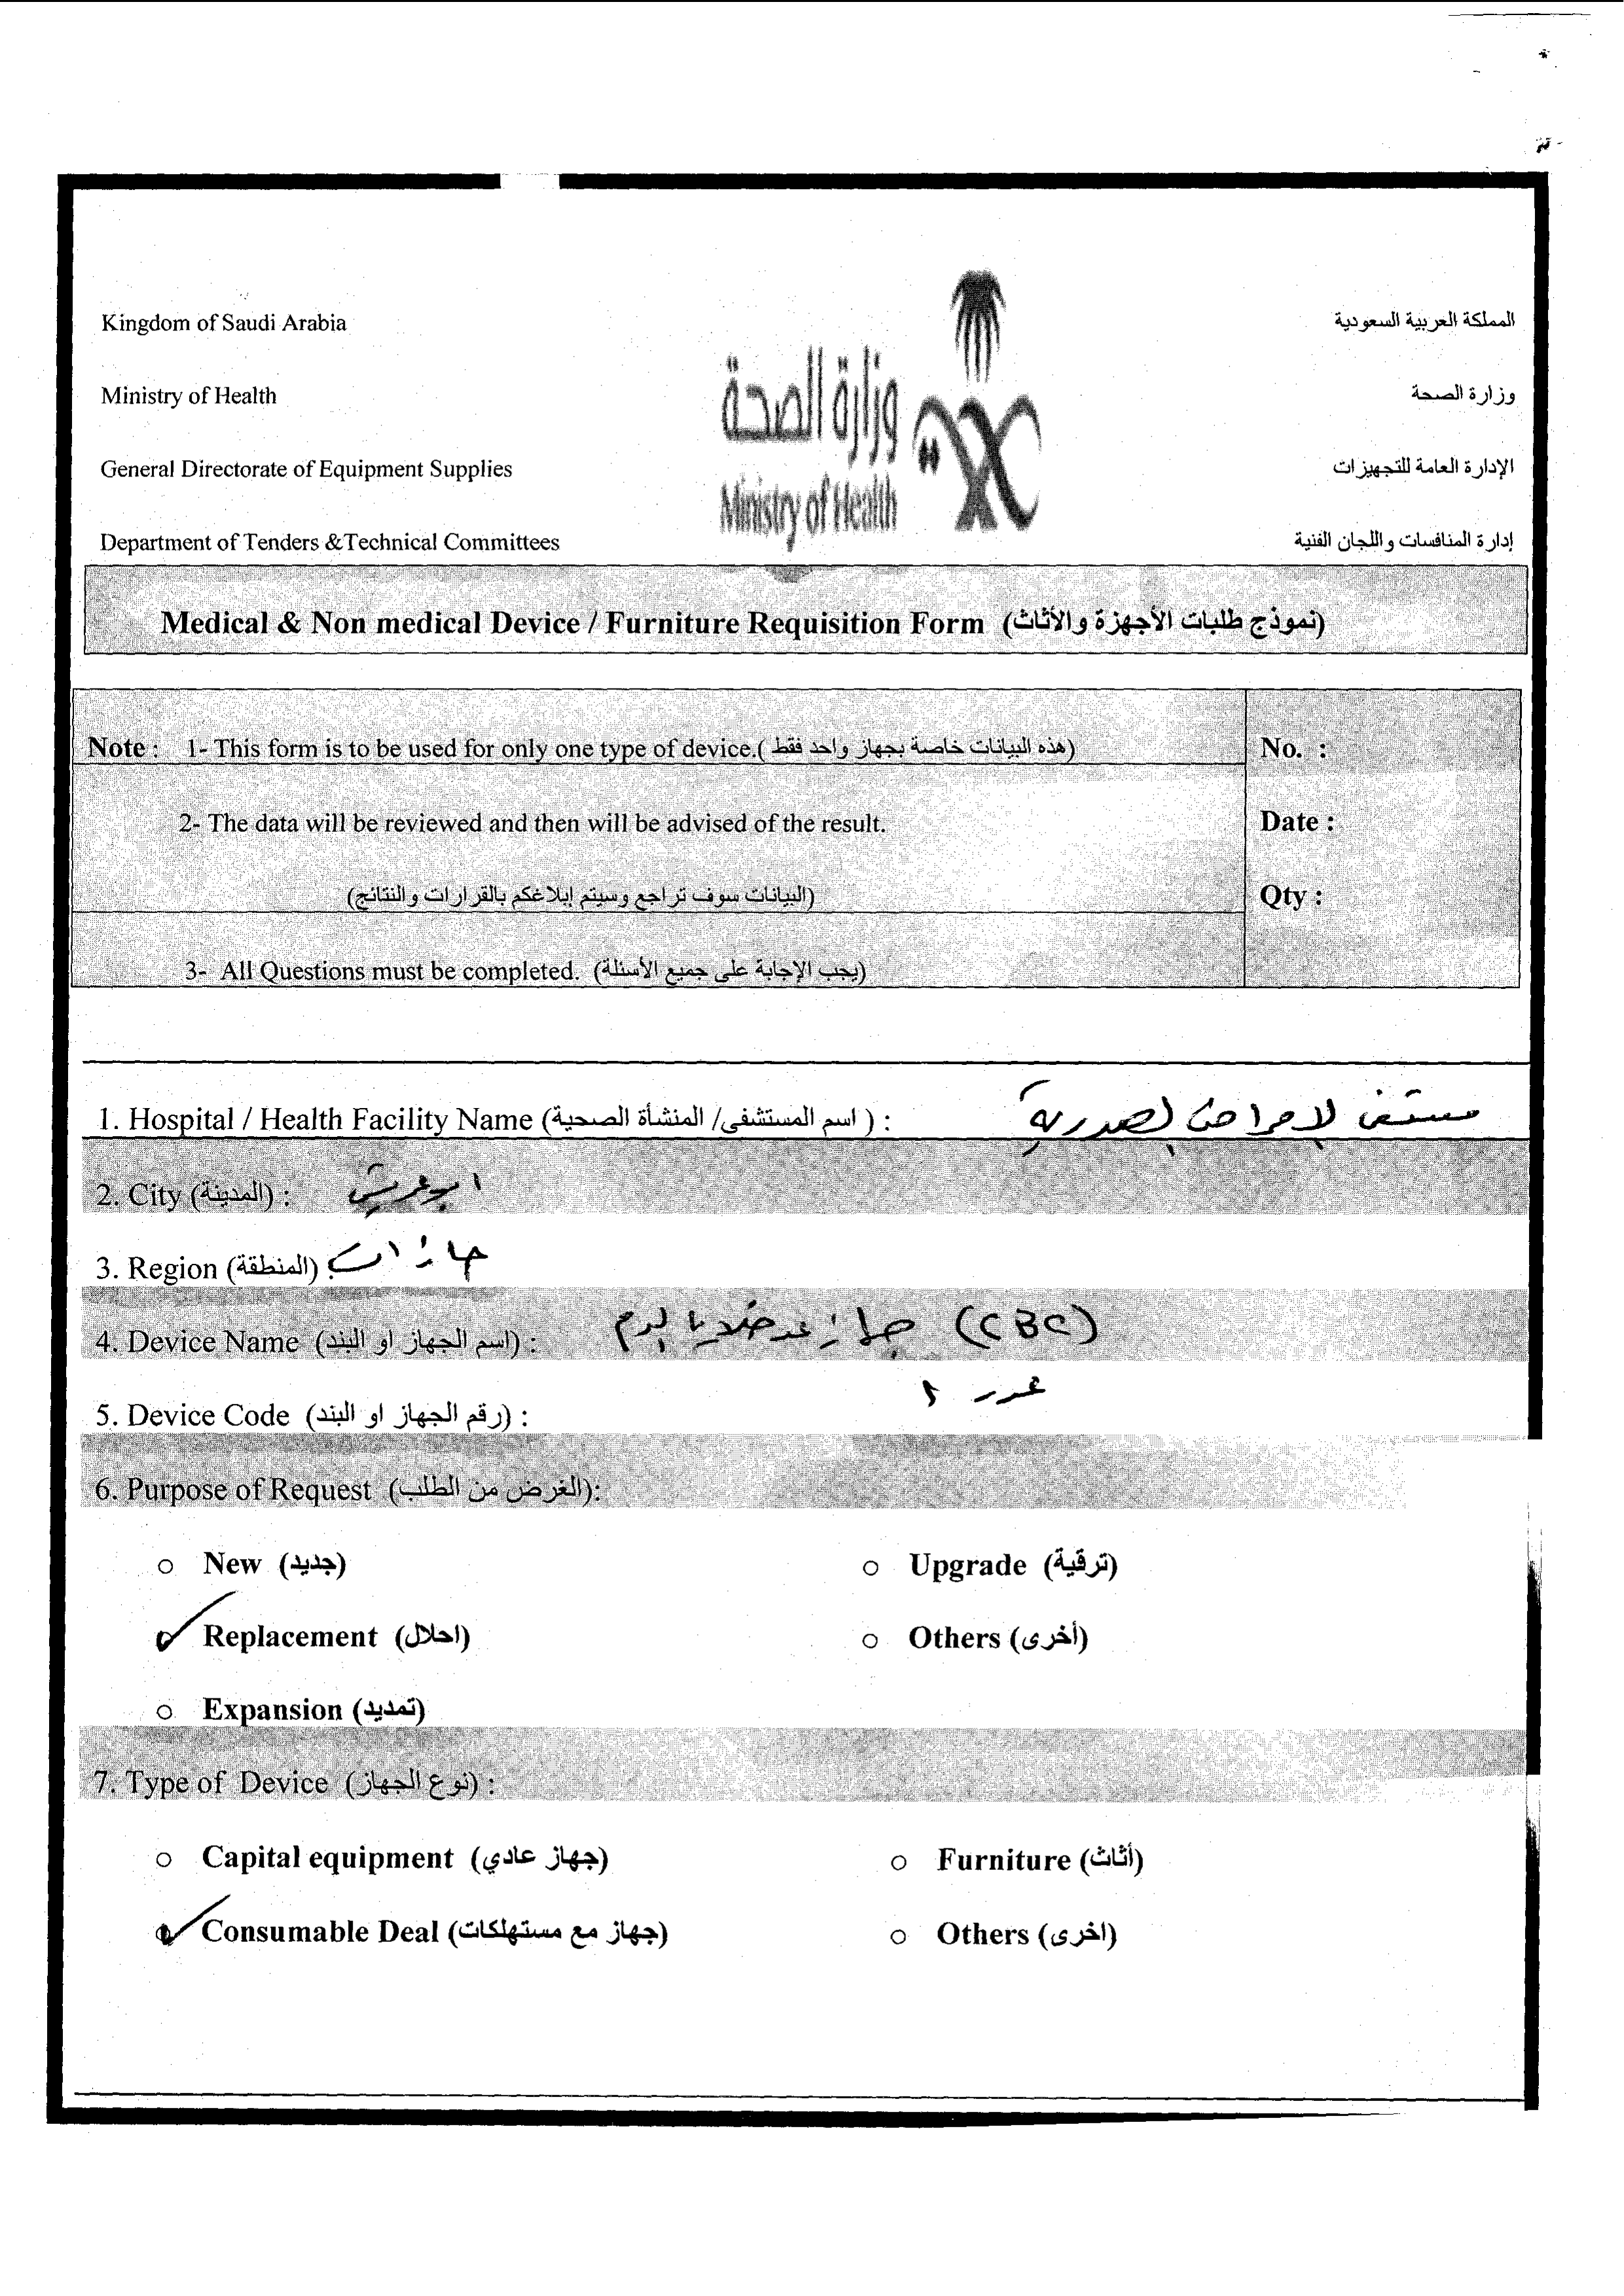 Kingdom of Saudi Arabia
المملكة العربية السعودية
Ministry of Health
وزارة الصحة
General Directorate of Equipment Supplies
الإدارة العامة للتجهيزات
Department of Tenders &Technical Committees
إدارة المنافسات واللجان الفنية
وزارة الصحة
Ministry of Health
Medical & Non medical Device / Furniture Requisition Form (نموذج طلبات الأجهزة والأثاث)
Note : 1- This form is to be used for only one type of device.( هذه البيانات خاصة بجهاز واحد فقط)
No. :
2- The data will be reviewed and then will be advised of the result.
Date :
(البيانات سوف تراجع وسيتم إبلاغكم بالقرارات والنتائج)
Qty :
3- All Questions must be completed. (يجب الإجابة على جميع الأسئلة)
1. Hospital / Health Facility Name (اسم المستشفى/ المنشأة الصحية ) : مستشفى الامراض الصدرية
2. City (المدينة) : ابوعريش
3. Region (المنطقة) : جازان
4. Device Name (اسم الجهاز او البند) : جهاز عد خلايا الدم (CBC)
عدد ٢
5. Device Code (رقم الجهاز او البند) :
6. Purpose of Request (الغرض من الطلب):
New (جديد)
Upgrade (ترقية)
Replacement (احلال)
Others (أخرى)
Expansion (تمديد)
7. Type of Device (نوع الجهاز) :
Capital equipment (جهاز عادي)
Furniture (أثاث)
Consumable Deal (جهاز مع مستهلكات)
Others (اخرى)